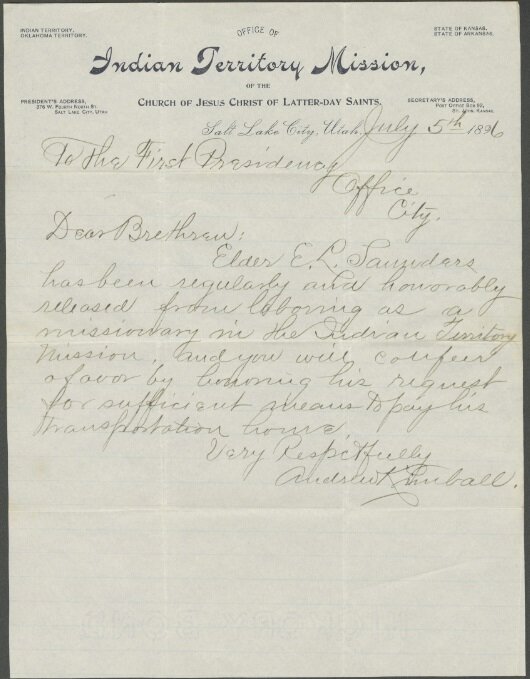 INDIAN TERRITORY,
OKLAHOMA TERRITORY.
OFFICE OF
STATE OF KANSAS.
STATE OF ARKANSAS.
Indian Territory Mission,
OF THE
CHURCH OF JESUS CHRIST OF LATTER-DAY SAINTS.
PRESIDENT'S ADDRESS,
376 W. FOURTH NORTH ST.
SALT LAKE CITY, UTAH
SECRETARY'S ADDRESS,
POST OFFICE BOX
KANSAS
Salt Lake City, Utah, July 5th 1896
To The First Presidency
Office
City.
Dear Brethren:
Elder E. L. Saunders
has been regularly and honorably
released from laboring as a
missionary in the Indian Territory
Mission, and you will confeer
a favor by honoring his request
for sufficient means to pay his
transportation home
Very Respctfully
Andrew Kimball.